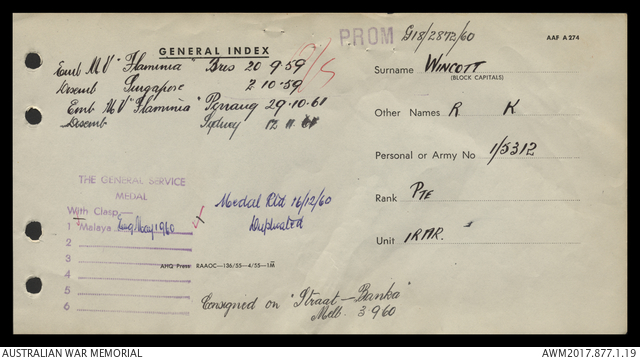 PROM G18/2872/60
AAF A274
GENERAL INDEX
Emb M V "Flaminia" Bres 20 9.59
Disemb Singapore 2 10.59
Emb M V "Flaminia" Penang 29.10.61
Disemb Sydney 12 11 61
Surname WINCOTT
(BLOCK CAPITALS)
Other Names R K
Personal or Army No 1/5312
Rank PTE
Unit 1RAR.
THE GENERAL SERVICE
MEDAL
With Clasp
1 Malaya 1960
2
3
4
5
6
Medal 16/12/60
Duplicated
AHQ Press RAAOC—136/55—4/55—1M
Consigned on "Straat—Banka"
Melb 3 9 60
AUSTRALIAN WAR MEMORIAL
AWM2017.877.1.19